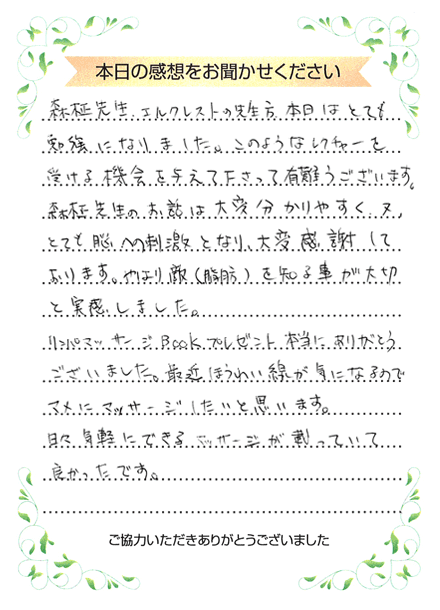 本日の感想をお聞かせください
森柾先生、エルクレストの先生方、本日はとても
勉強になりました。このようなレクチャーを
受ける機会を与えて下さって有難うございます。
森柾先生のお話は大変分かりやすく、又、
とても脳への刺激となり、大変感謝して
おります。やはり敵（脂肪）を知る事が大切
と実感しました。
リンパマッサージBookプレゼント本当にありがとう
ございました。最近ほうれい線が気になるので
マメにマッサージしたいと思います。
日々気軽にできるマッサージが載っていて
良かったです。
ご協力いただきありがとうございました